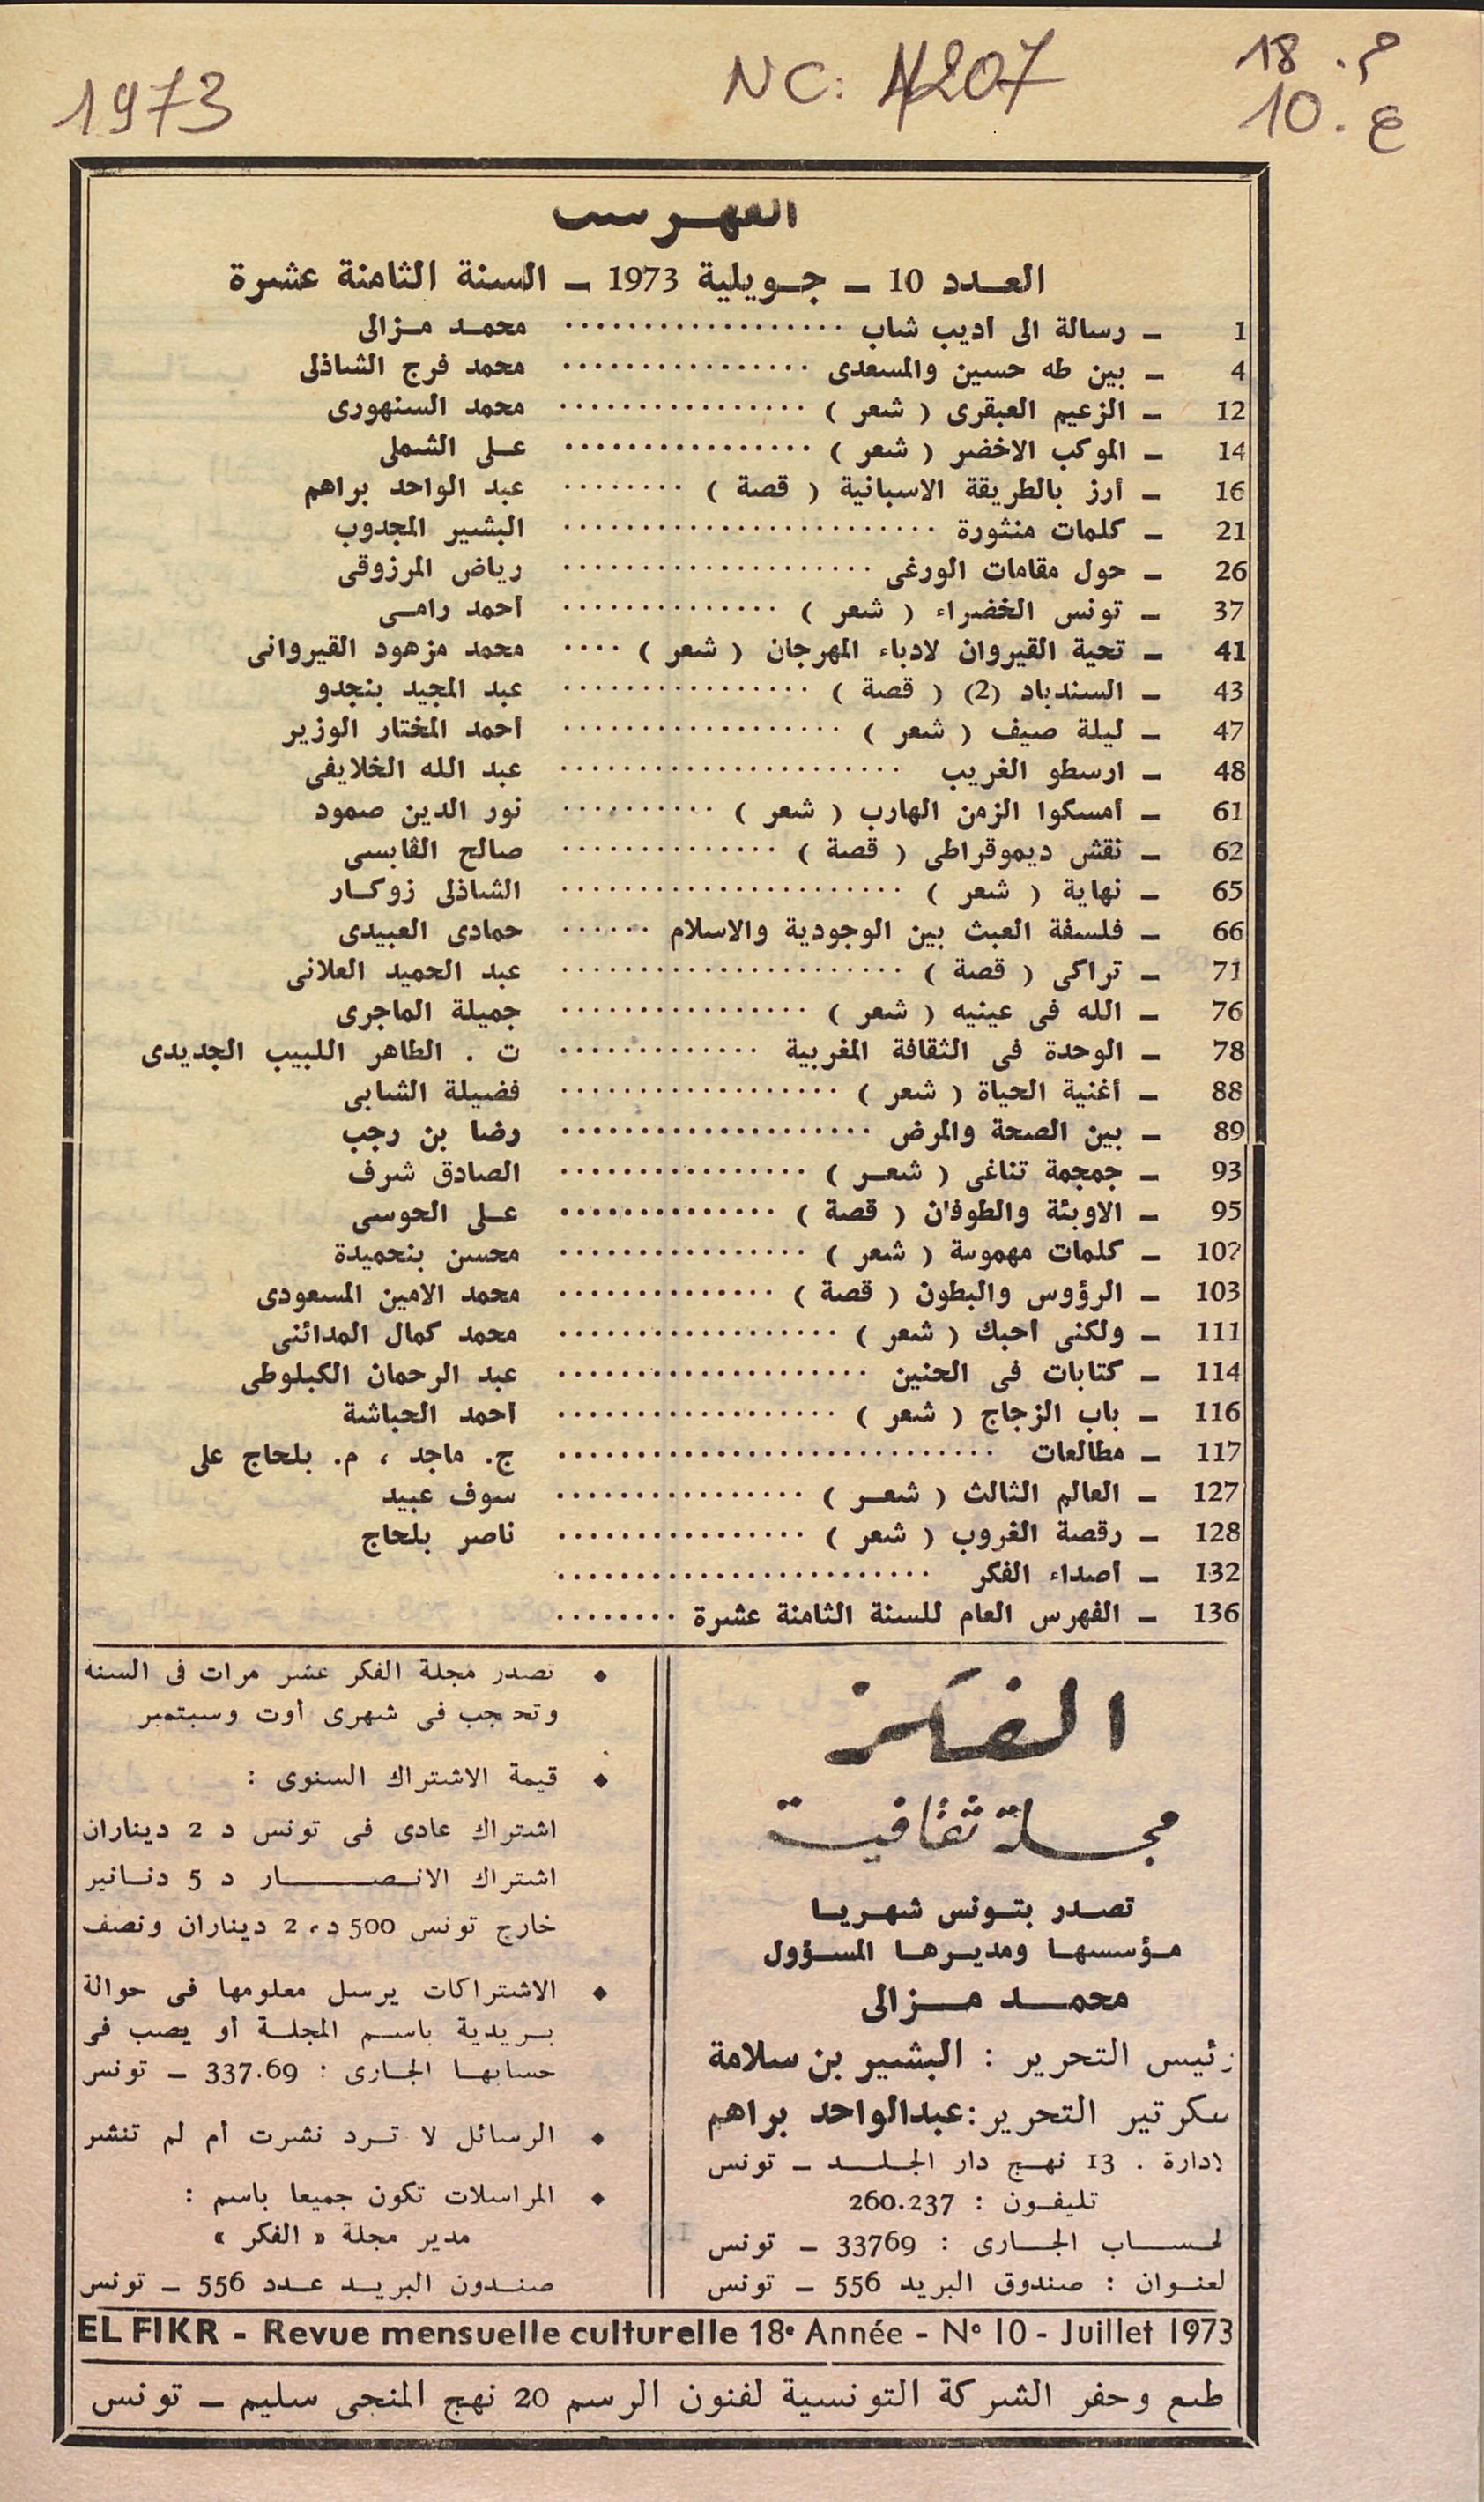 1973
NC: 4207
م. 18
ع. 10
الفهرست
العدد 10 – جويلية 1973 – السنة الثامنة عشرة
1 – رسالة الى أديب شاب .................. محمد مزالى
4 – بين طه حسين والمسعدى ................ محمد فرج الشاذلى
12 – الزعيم العبقرى ( شعر ) ................ محمد السنهورى
14 – الموكب الاخضر ( شعر ) ................ على الشملى
16 – أرز بالطريقة الاسبانية ( قصة ) ........ عبد الواحد براهم
21 – كلمات منثورة ........................ البشير المجدوب
26 – حول مقامات الورغى .................... رياض المرزوقى
37 – تونس الخضراء ( شعر ) .............. أحمد رامى
41 – تحية القيروان لادباء المهرجان ( شعر ) .... محمد مزهود القيروانى
43 – السندباد (2) ( قصة ) ................ عبد المجيد بنجدو
47 – ليلة صيف ( شعر ) .................. أحمد المختار الوزير
48 – ارسطو الغريب ...................... عبد الله الخلايفى
61 – أمسكوا الزمن الهارب ( شعر ) .......... نور الدين صمود
62 – نقش ديموقراطى ( قصة ) .............. صالح القابسى
65 – نهاية ( شعر ) ...................... الشاذلى زوكار
66 – فلسفة العبث بين الوجودية والاسلام ...... حمادى العبيدى
71 – تراكى ( قصة ) ...................... عبد الحميد العلانى
76 – الله فى عينيه ( شعر ) ................ جميلة الماجرى
78 – الوحدة فى الثقافة المغربية ............. ت . الطاهر اللبيب الجديدى
88 – أغنية الحياة ( شعر ) .................. فضيلة الشابى
89 – بين الصحة والمرض .................... رضا بن رجب
93 – جمجمة تناغى ( شعر ) ................ الصادق شرف
95 – الاوبئة والطوفان ( قصة ) .............. على الحوسى
102 – كلمات مهموسة ( شعر ) ................ محسن بنحميدة
103 – الرؤوس والبطون ( قصة ) .............. محمد الامين المسعودى
111 – ولكنى أحبك ( شعر ) .................. محمد كمال المدائنى
114 – كتابات فى الحنين .................... عبد الرحمان الكبلوطى
116 – باب الزجاج ( شعر ) .................. أحمد الحباشة
117 – مطالعات ............................ ج. ماجد ، م. بلحاج على
127 – العالم الثالث ( شعر ) ................ سوف عبيد
128 – رقصة الغروب ( شعر ) ................ ناصر بلحاج
132 – أصداء الفكر ........................
136 – الفهرس العام للسنة الثامنة عشرة ........
الفكر
مجلة ثقافية
تصدر بتونس شهريا
مؤسسها ومديرها المسؤول
محمد مزالى
رئيس التحرير : البشير بن سلامة
سكرتير التحرير : عبدالواحد براهم
لادارة . 13 نهج دار الجلد – تونس
تليفون : 260.237
لحساب الجارى : 33769 – تونس
لعنوان : صندوق البريد 556 – تونس
♦ تصدر مجلة الفكر عشر مرات فى السنة
وتحتجب فى شهرى أوت وسبتمبر
♦ قيمة الاشتراك السنوى :
اشتراك عادى فى تونس د 2 ديناران
اشتراك الانصار د 5 دنانير
خارج تونس 500 د، 2 ديناران ونصف
♦ الاشتراكات يرسل معلومها فى حوالة
بريدية باسم المجلة أو يصب فى
حسابها الجارى : 337.69 – تونس
♦ الرسائل لا ترد نشرت أم لم تنشر
♦ المراسلات تكون جميعا باسم :
مدير مجلة « الفكر »
صندوق البريد عدد 556 – تونس
EL FIKR - Revue mensuelle culturelle 18e Année - N° 10 - Juillet 1973
طبع وحفر الشركة التونسية لفنون الرسم 20 نهج المنجى سليم – تونس